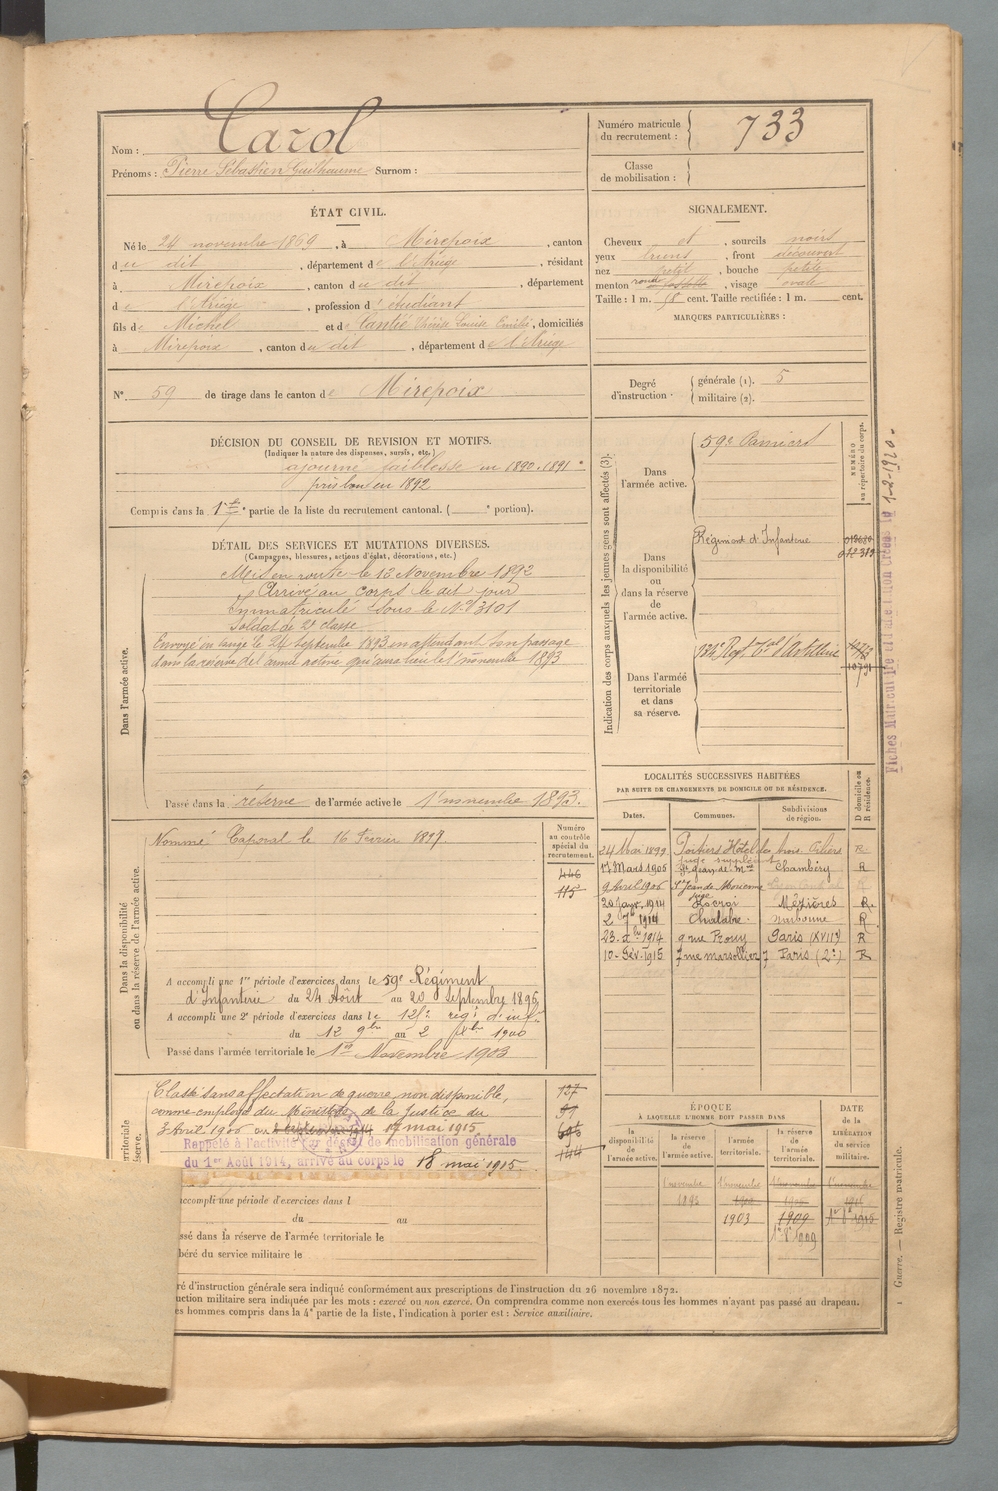 Nom : Carol
Prénoms : Pierre Sébastien Guilhaume Surnom :
Numéro matricule du recrutement : 733
Classe de mobilisation :
ÉTAT CIVIL.
Né le 24 novembre 1869, à Mirepoix, canton
du dit, département de l'Ariège, résidant
à Mirepoix, canton du dit, département
de l'Ariège, profession d'étudiant
fils de Michel et de Louise Emilie, domiciliés
à Mirepoix, canton du dit, département de l'Ariège
N° 59 de tirage dans le canton de Mirepoix
SIGNALEMENT.
Cheveux et, sourcils noirs
yeux bruns, front découvert
nez petit, bouche petite
menton rond, visage ovale
Taille : 1 m. cent. Taille rectifiée : 1 m. cent.
MARQUES PARTICULIÈRES :
Degré d'instruction : générale (1). 5
militaire (2).
DÉCISION DU CONSEIL DE REVISION ET MOTIFS.
(Indiquer la nature des dispenses, sursis, etc.)
ajourné faiblesse en 1890-1891
pris bon en 1892
Compris dans la 1re partie de la liste du recrutement cantonal. ( portion).
DÉTAIL DES SERVICES ET MUTATIONS DIVERSES.
(Campagnes, blessures, actions d'éclat, décorations, etc.)
Dans l'armée active.
Mis en route le 13 Novembre 1892
Arrivé au corps le dit jour
Immatriculé sous le N° 3101
Soldat de 2e classe
Envoyé en congé le 24 Septembre 1893 en attendant son passage
dans la réserve de l'armée active qui aura lieu le 1er novembre 1893
Passé dans la réserve de l'armée active le 1er novembre 1893.
Dans la disponibilité
ou dans la réserve de l'armée active.
Nommé Caporal le 16 février 1897
Numéro au contrôle spécial du recrutement.
446
115
A accompli une 1re période d'exercices dans le 59e Régiment
d'Infanterie du 24 Août au 20 Septembre 1896
A accompli une 2e période d'exercices dans le 125e régt d'inf
du 12 9bre au 2 Xbre 1900
Passé dans l'armée territoriale le 1er Novembre 1903
Classé sans affectation de guerre, non disponible,
comme employé du Ministère de la Justice du
3 Avril 1906 au 17 mai 1915
Rappelé à l'activité (par décret de mobilisation générale
du 1er Août 1914, arrivé au corps le 18 mai 1915.
137
91
144
accompli une période d'exercices dans l
du au
ssé dans la réserve de l'armée territoriale le
béré du service militaire le
Indication des corps auxquels les jeunes gens sont affectés (3).
NUMÉRO au répertoire du corps.
Dans l'armée active.
59e Pamiers
Dans la disponibilité ou dans la réserve de l'armée active.
Régiment d'Infanterie
Dans l'armée territoriale et dans sa réserve.
Regt Tal d'Artillerie
LOCALITÉS SUCCESSIVES HABITÉES
PAR SUITE DE CHANGEMENTS DE DOMICILE OU DE RÉSIDENCE.
Dates. Communes. Subdivisions de région. D domicile ou R résidence.
24 Mai 1899 Poitiers Hôtel des trois Piliers R
juge suppléant
17 Mars 1905 St Jean de Mne Chambéry R
9 Avril 1906 St Jean de Maurienne R
juge
20 Janv. 1914 Rocroi Mézières R.
2 7bre 1914 Chalabre Narbonne R
23. Xbre 1914 9 rue Prony Paris (XVIIe) R
10- Fév. 1915 7 rue marsollier Paris (2e) R
ÉPOQUE
À LAQUELLE L'HOMME DOIT PASSER DANS
la disponibilité de l'armée active. la réserve de l'armée active. l'armée territoriale. la réserve de l'armée territoriale.
DATE de la LIBÉRATION du service militaire.
1 novembre 1893
1903
1909
Fiches Matricul
1-2-1920
ré d'instruction générale sera indiqué conformément aux prescriptions de l'instruction du 26 novembre 1872.
uction militaire sera indiquée par les mots : exercé ou non exercé. On comprendra comme non exercés tous les hommes n'ayant pas passé au drapeau.
es hommes compris dans la 4e partie de la liste, l'indication à porter est : Service auxiliaire.
Guerre. — Registre matricule.